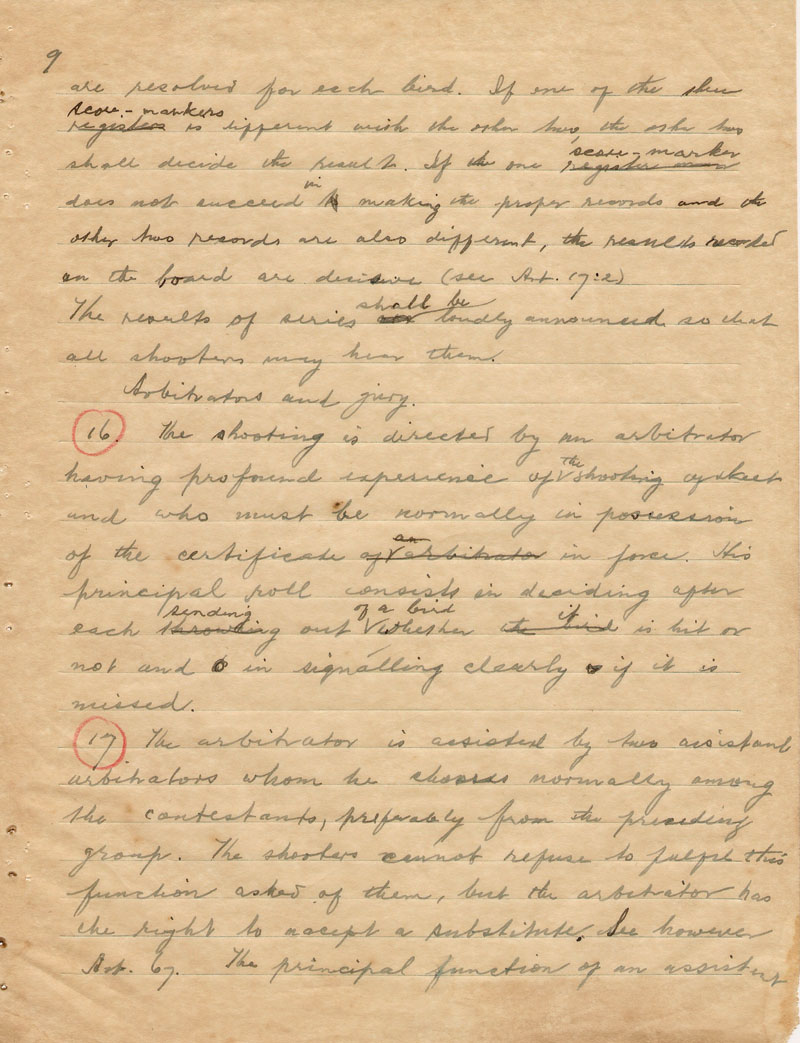 9
are resolved for each bird. If one of the
score-markers
registers is different with the other two, the other two
shall decide the result. If the one register man score-marker
does not succeed in making the proper records and the
other two records are also different, the results recorded
on the board are decisive (see Art. 17:2)
The results of series are shall be loudly announced so that
all shooters may hear them.
Arbitrators and jury.
16. The shooting is directed by an arbitrator
having profound experience of the shooting of skeet
and who must be normally in possession
of the certificate of an arbitrator in force. His
principal roll consists in deciding after
each throwing sending out of a bird whether the bird it is hit or
not and in signalling clearly if it is
missed.
17 The arbitrator is assisted by two assistant
arbitrators whom he chooses normally among
the contestants, preferably from the preceding
group. The shooters cannot refuse to fulfil this
function asked of them, but the arbitrator has
the right to accept a substitute. See however
Art. 67. The principal function of an assistant